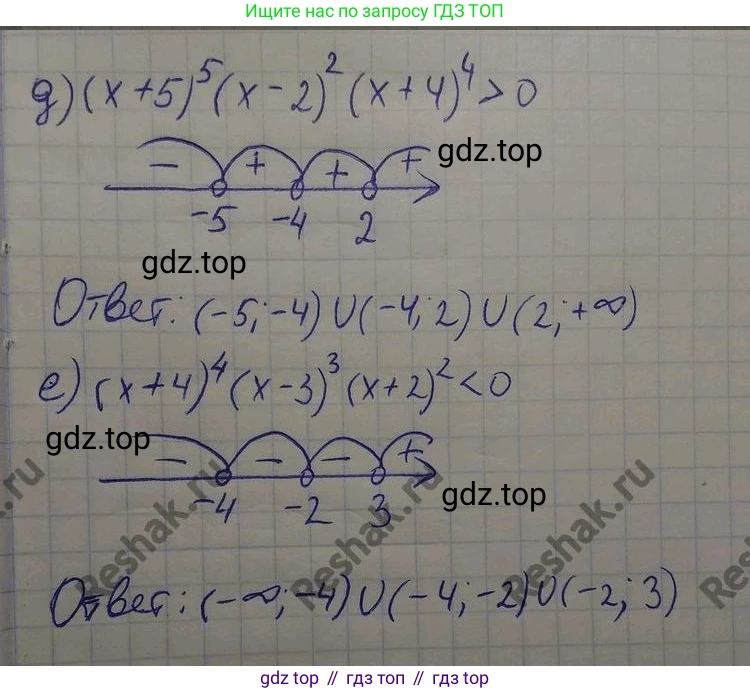 Ищите нас по запросу ГДЗ ТОП
д) (x+5)⁵(x-2)²(x+4)⁴>0
- + + +
gdz.top
-5 -4 2
gdz.top
Ответ: (-5;-4)∪(-4;2)∪(2;+∞)
е) (x+4)⁴(x-3)³(x+2)²<0
gdz.top
- - - +
gdz.top
-4 -2 3
Reshak.ru Reshak.ru Reshak.ru
Ответ: (-∞;-4)∪(-4;-2)∪(-2;3)
gdz.top // гдз топ // gdz.top